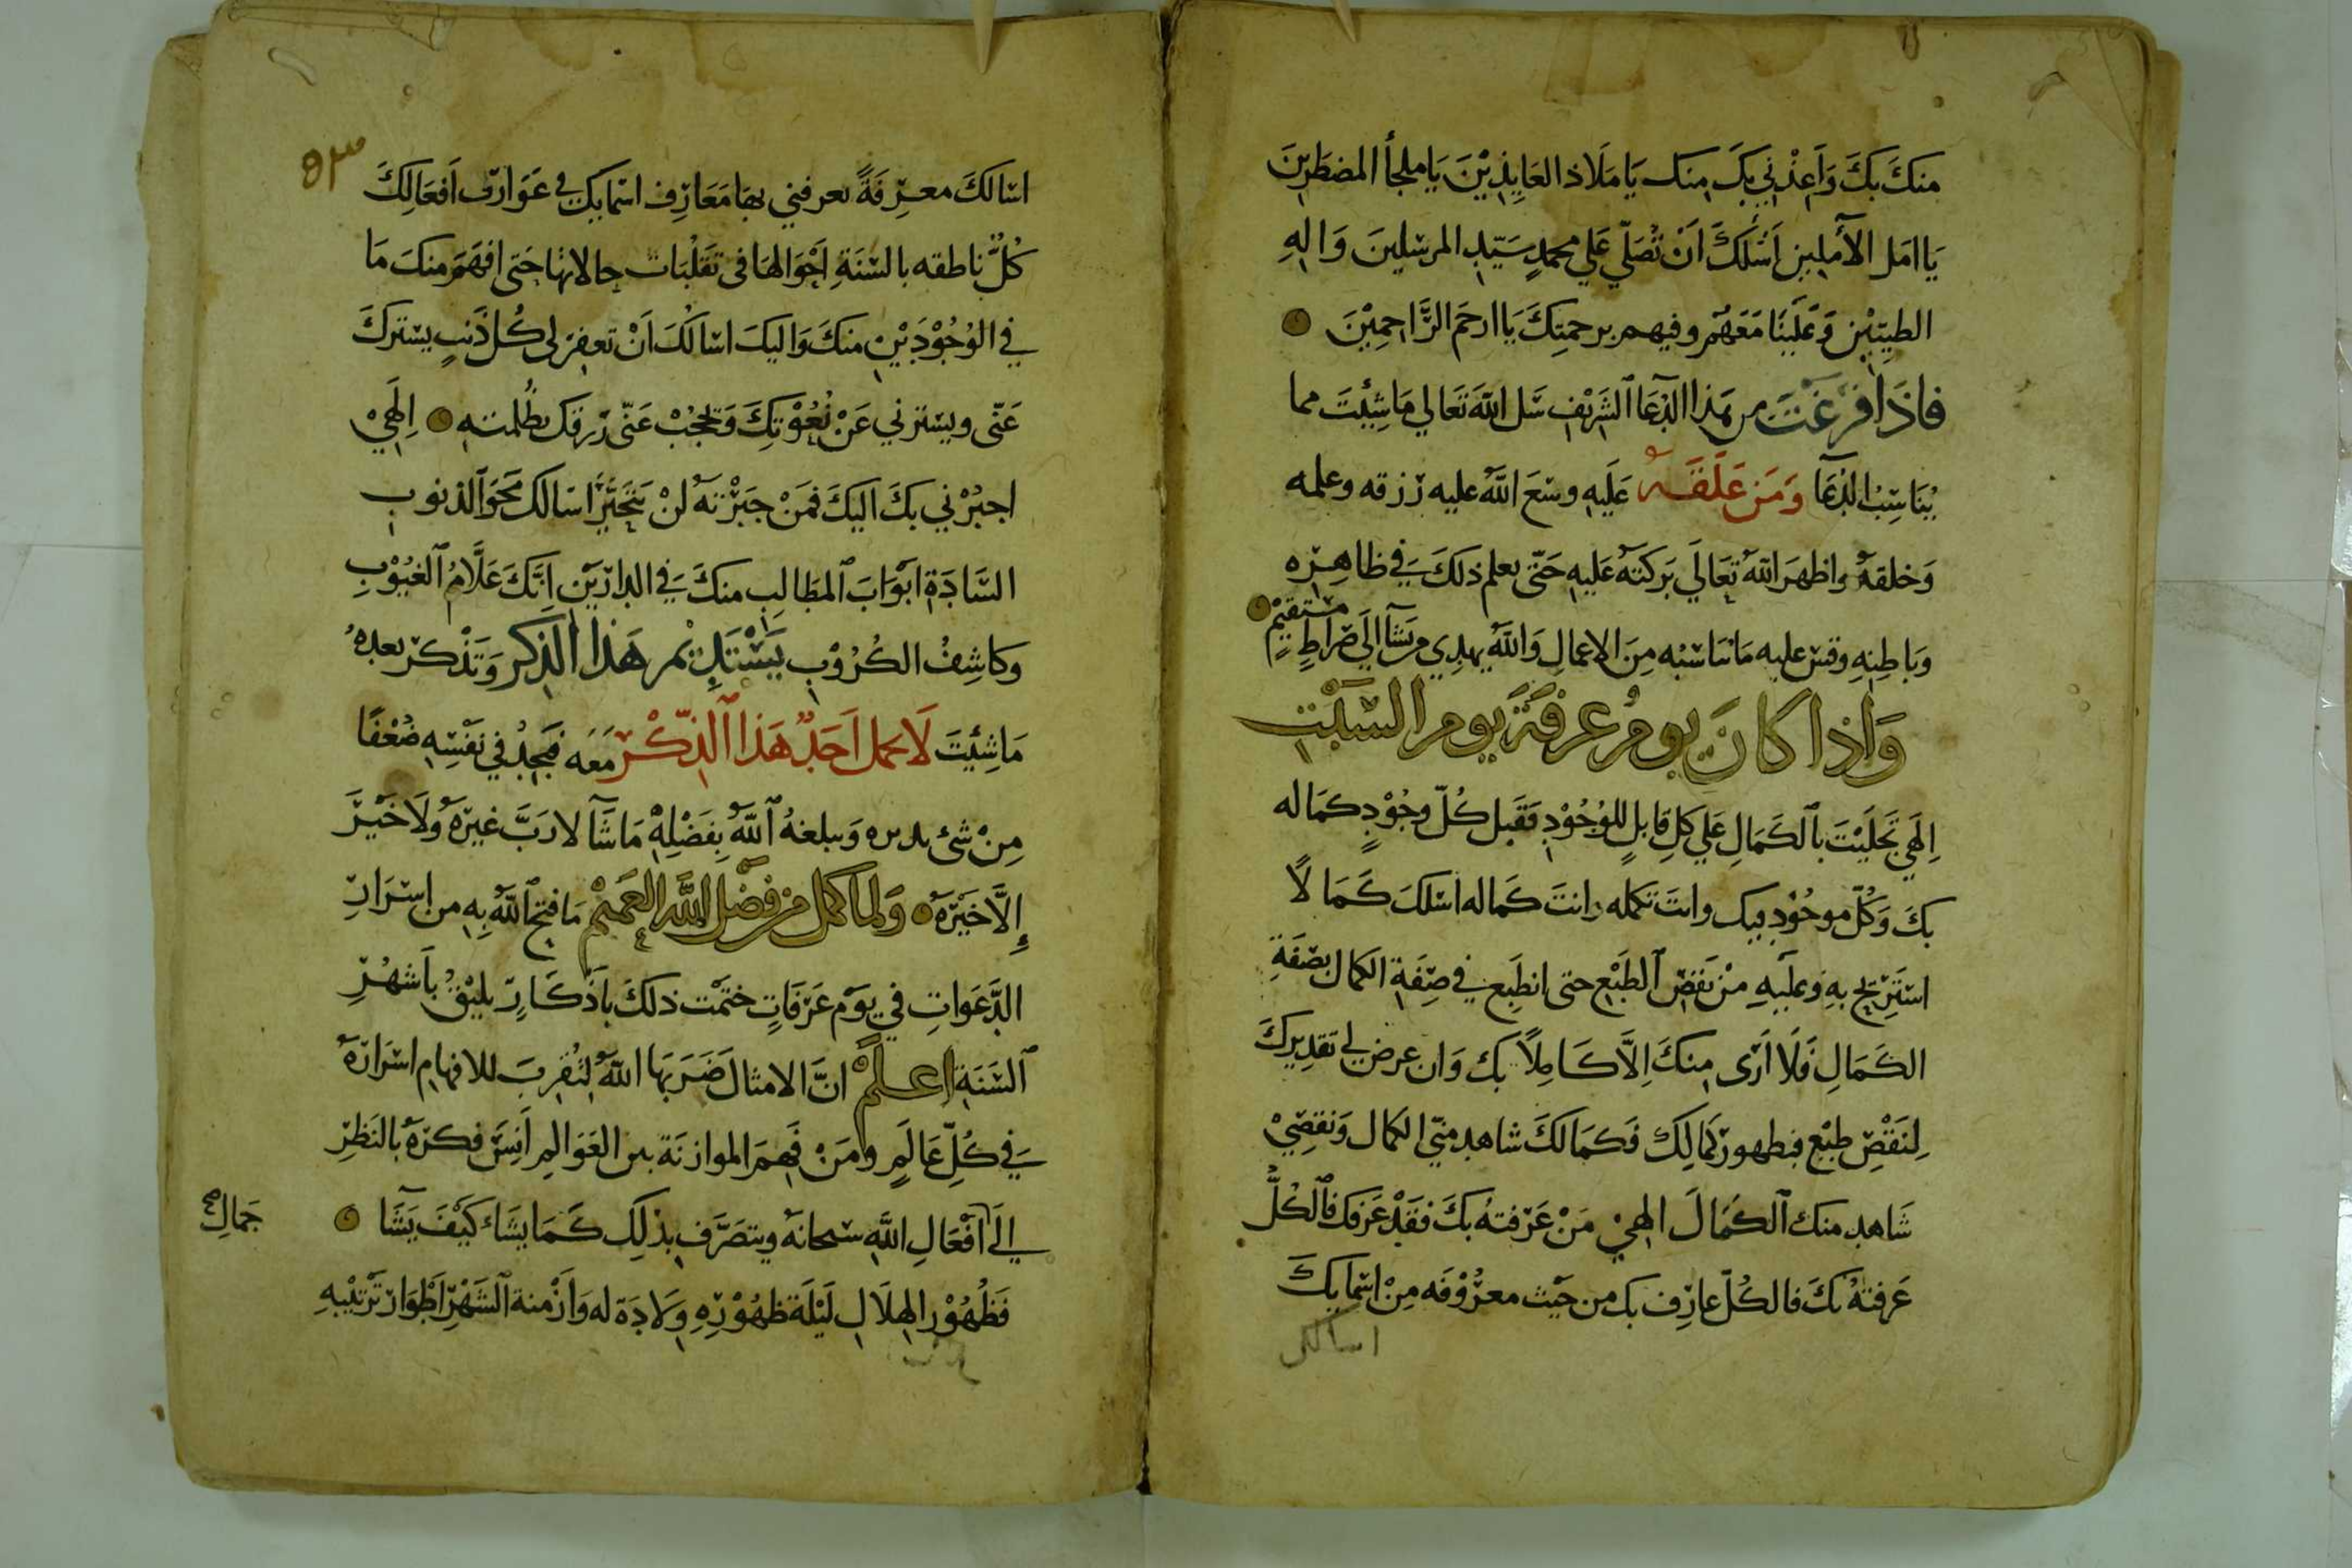 منكَ بكَ وَاَعِذْنِي بكَ منك يَا مَلَاذ العَايِذِيْنَ يَا ملجأ المضطَرِينَ
يَا امَل الآمِلين اَسْئَلُكَ اَنْ تُصَلّي عَلي محمدٍ سَيّدِ المرسَلينَ وَالهِ
الطيبِيْن وَعَلَيْنَا مَعَهُم وفيهم برحمتِكَ يَا ارحَم الرَّاحِمِيْنَ
فاذَا فرَغْتَ من هَذا الدُّعَا الشَرِيْفِ سَل اللهَ تَعَالي مَا شِئْتَ مما
يُنَاسِبُ الدُّعَآ وَمَن عَلّقَهُ عَلَيهِ وسَعَ اللهُ عليه رزقه وعلمه
وَخلقهُ واظهرَ اللهُ تعَالَي بَركتَهُ عَليهِ حَتّى يعلم ذلكَ في ظاهِرِه
وَبَاطِنِهِ وقس عليه مَا يناسبُه مِنَ الاعمالِ وَاللهُ يهدِي من يَشآ اِلَي صِرَاطٍ مستَقيْمٍ
وَاِذا كانَ يومُ عرفَةَ يومَ السَّبْتِ
اِلَهي تَجَلَيْتَ بالكَمَالِ عَلي كلِ قابلٍ للوُجُوْدِ فقَبل كُلّ وجُوْدٍ كمَاله
بكَ وَكُلّ موجُوْدٍ بيك وانتَ تكمله وانتَ كمَاله اسْلكَ كَمَالًا
استَرِيح بهِ وعَليهِ مِنْ نَقصِ الطَبْع حتى انطَبِع في صِفَةِ الكمال بصفَةِ
الكَمَالِ فَلَا اَرَى منكَ اِلَّا كَامِلاً بك وَان عرض لي تقدِيركَ
لِنَقْصِ طبْع فبظهور كمَالِك فَكمَالكَ شاهِد منّي الكمال وَنقصِيْ
شَاهِد منك الكمَالَ الهِيْ مَنْ عَرَفتهُ بكَ فقَدْ عَرَفك فالكُلُّ
عَرفتهُ بكَ فالكُلّ عارِف بك من حَيْث معْرُوْفَه مِنْ اسْمايكَ
اسالك
٥٣
اسَالكَ معرِفَةً تعرفني بهَا مَعَارِف اسْمايك في عَوَارف اَفعَالِكَ
كُلّ ناطقه بالسِّنَةِ اَحْوَالهَا في تقَلّبَات حالاتها حَتى افهَمَ منكَ مَا
في الوُجُوْدَيْنِ منكَ وَاليكَ اسَالُكَ اَنْ تغفِرَ لى كُل ذَنبٍ يستركَ
عَنّى ويستُرني عَنْ نُعُوْتِكَ وَتحجُبْ عَنّى رزقك بظُلمتهِ اِلَهِيْ
اجبُرْني بكَ اليكَ فمَنْ جَبَرْتهُ لنْ يَتحَيَّر اسَالك مَحَو الذنوبِ
السَّادَةِ اَبْوَابَ المطَالِبِ منكَ في الدارَيْن اِنَّكَ عَلَّامُ الغُيُوْبِ
وكاشِفُ الكُرُوْبِ يَسْتَدِيْم هَذا الذِكر وَتَذْكر بعدهُ
مَا شِئيتَ لَا يحمل اَحَدٌ هَذا الذّكْر مَعَه فيجِدُ في نفسِهِ ضُعْفًا
مِنْ شئ يدبره وَيبلغهُ اللهُ بفَضْلِهِ مَا شَآ لا رَبَّ غيرَهُ وَلَا خَيْرَ
إِلَّا خَيْرَهُ وَلما كمل من فضْلِ اللهِ العَمِيْم مَا فتح اللهُ بهِ من اسْرَارِ
الدَّعَوَاتِ في يَوْم عَرَفَاتٍ ختَمْت ذلكَ باَذكارٍ يليْقُ باَشهُرِ
السَّنَةِ اعلَم انَّ الامثال ضَرَبَهَا اللهُ لتُقرِبَ للافهامِ اسْرَارَهُ
في كُلّ عَالَمٍ وَمَنْ فَهِمَ الموازنَة بين العَوَالمِ اَنِسَ فكرَهُ بالنَظرِ
الَى اَفْعَالِ اللهِ سبحانهُ ويتصَرّف بذلِكَ كَمَا يشَاء كَيْفَ يَشَآ
جَمالِ
فَظُهُوْر الهِلَالِ لَيْلَة ظهُوْرِهِ وِلَادَة له وَاَزمِنة الشَهْرِ اَطْوَار تَرْتيْبِهِ